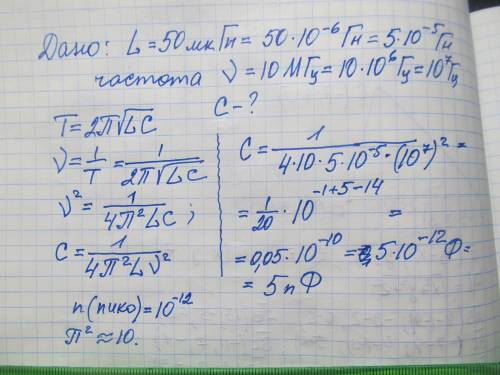 Дано: L = 50 мкГн = 50·10⁻⁶ Гн = 5·10⁻⁵ Гн
частота ν = 10 МГц = 10·10⁶ Гц = 10⁷ Гц
C - ?
T = 2π√LC
ν = 1/T = 1/(2π√LC)
ν² = 1/(4π²LC) ;
C = 1/(4π²Lν²)
п(пико) = 10⁻¹²
π² ≈ 10.
C = 1/(4·10·5·10⁻⁵·(10⁷)²) =
= 1/20 · 10⁻¹⁺⁵⁻¹⁴ =
= 0,05·10⁻¹⁰ = 5·10⁻¹² Ф =
= 5 пФ